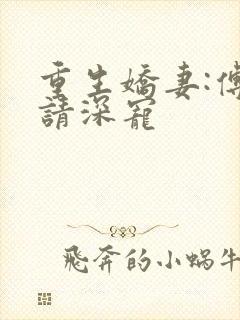 重生嬌妻:傅
請深寵
飛奔的小蝸牛